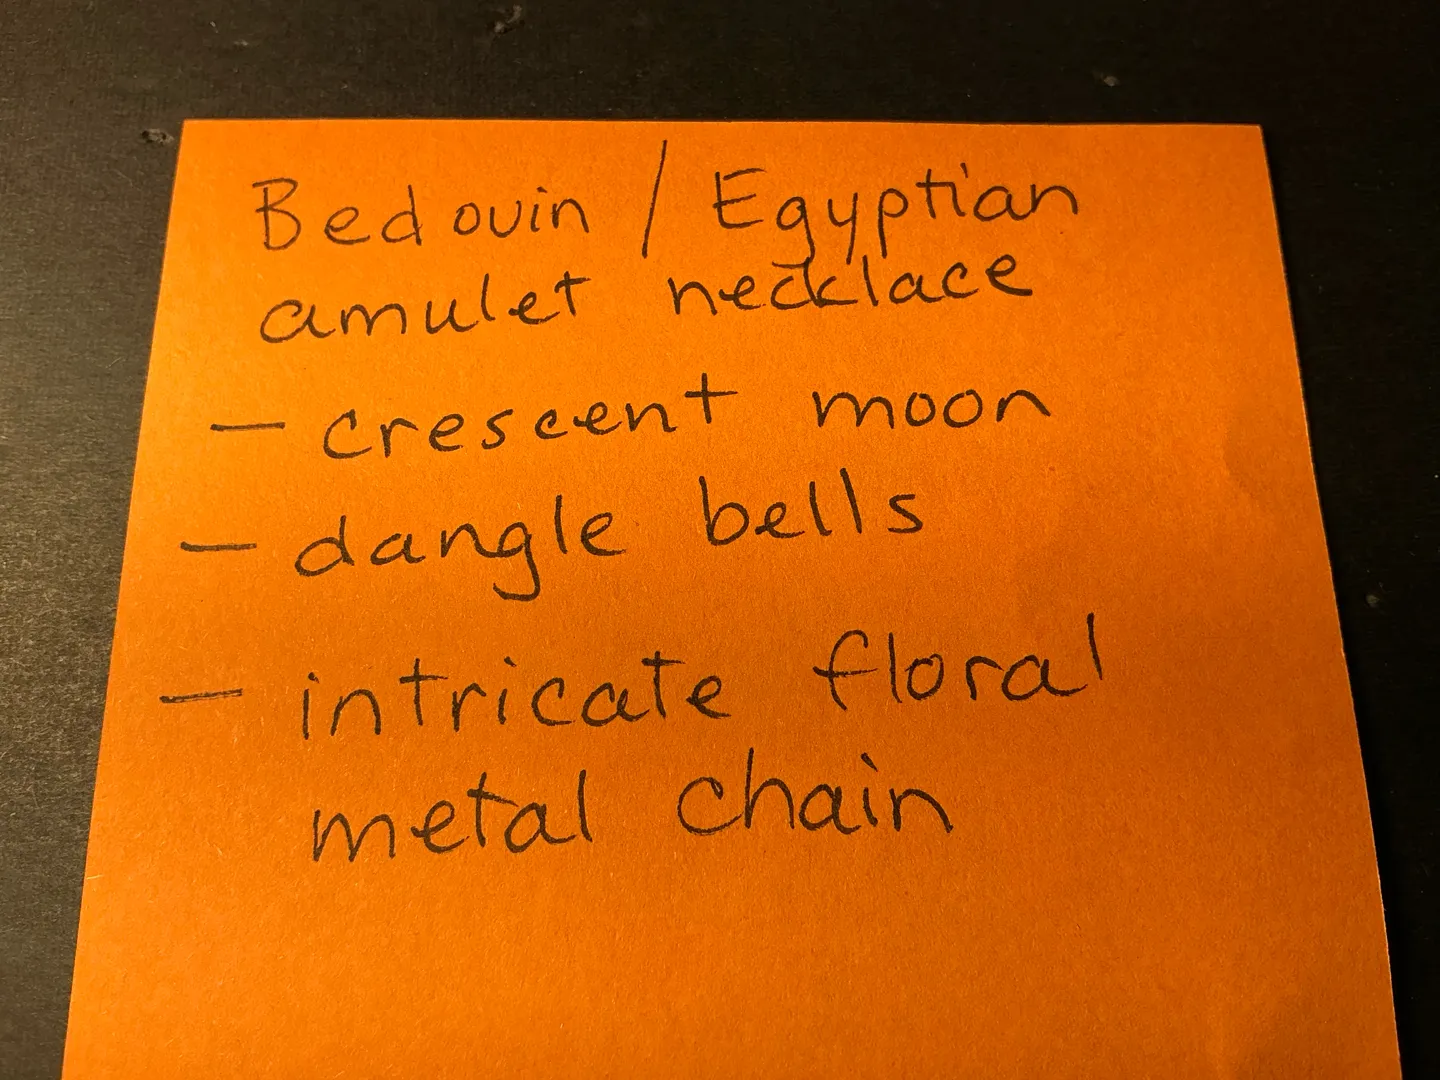 Bedouin / Egyptian
amulet necklace
- crescent moon
- dangle bells
- intricate floral
metal chain